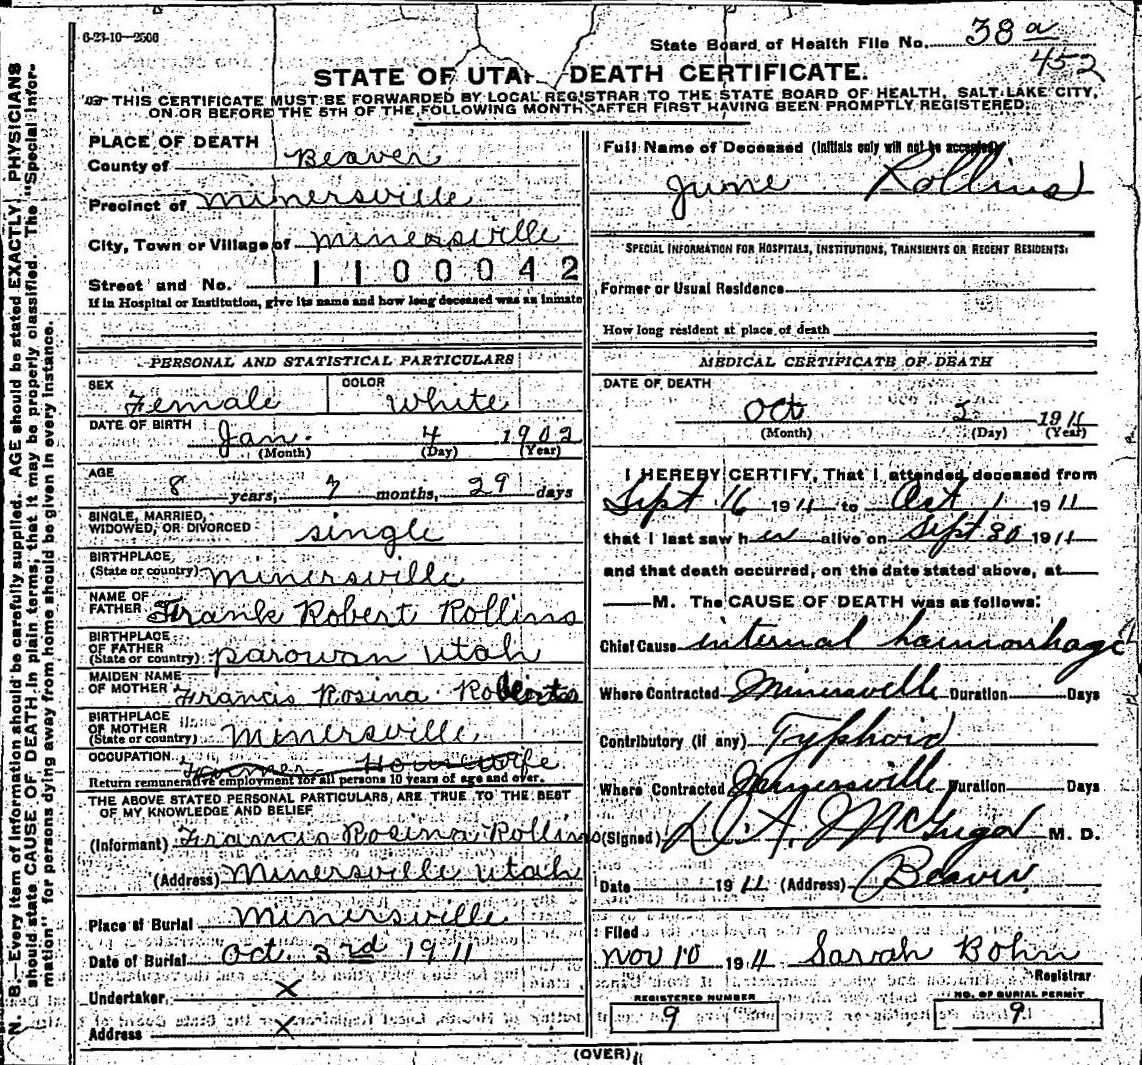 6-23-10—2500
State Board of Health File No. 38 a
452
STATE OF UTAH DEATH CERTIFICATE.
THIS CERTIFICATE MUST BE FORWARDED BY LOCAL REGISTRAR TO THE STATE BOARD OF HEALTH, SALT LAKE CITY,
ON OR BEFORE THE 5TH OF THE FOLLOWING MONTH AFTER FIRST HAVING BEEN PROMPTLY REGISTERED.
N. B.—Every item of information should be carefully supplied. AGE should be stated EXACTLY. PHYSICIANS
should state CAUSE OF DEATH in plain terms, that it may be properly classified. The "Special Infor-
mation" for persons dying away from home should be given in every instance.
PLACE OF DEATH
County of Beaver
Precinct of Minersville
City, Town or Village of Minersville
1100042
Street and No.
If in Hospital or Institution, give its name and how long deceased was an inmate
PERSONAL AND STATISTICAL PARTICULARS
SEX Female COLOR White
DATE OF BIRTH Jan. 4 1902
(Month) (Day) (Year)
AGE 8 years, 7 months, 29 days
SINGLE, MARRIED,
WIDOWED, OR DIVORCED single
BIRTHPLACE
(State or country) Minersville
NAME OF
FATHER Frank Robert Rollins
BIRTHPLACE
OF FATHER
(State or country) Parowan Utah
MAIDEN NAME
OF MOTHER Francis Rosina Roberts
BIRTHPLACE
OF MOTHER
(State or country) Minersville
OCCUPATION Housewife
Return remunerative employment for all persons 10 years of age and over.
THE ABOVE STATED PERSONAL PARTICULARS ARE TRUE TO THE BEST
OF MY KNOWLEDGE AND BELIEF
(Informant) Francis Rosina Rollins
(Address) Minersville Utah
Place of Burial Minersville
Date of Burial Oct. 3rd 1911
Undertaker X
Address X
Full Name of Deceased (Initials only will not be accepted)
June Rollins
SPECIAL INFORMATION FOR HOSPITALS, INSTITUTIONS, TRANSIENTS OR RECENT RESIDENTS:
Former or Usual Residence
How long resident at place of death
MEDICAL CERTIFICATE OF DEATH
DATE OF DEATH
Oct 1911
(Month) (Day) (Year)
I HEREBY CERTIFY, That I attended deceased from
Sept 16 1911 to Oct 1 1911
that I last saw her alive on Sept 30 1911
and that death occurred, on the date stated above, at
M. The CAUSE OF DEATH was as follows:
Chief Cause internal haemorrhage
Where Contracted Minersville Duration Days
Contributory (if any) Typhoid
Where Contracted Minersville Duration Days
(Signed) M. D.
Date 1911 (Address) Beaver
Filed
Nov 10 1911 Sarah Bohn
Registrar
REGISTERED NUMBER
9
NO. OF BURIAL PERMIT
9
(OVER)